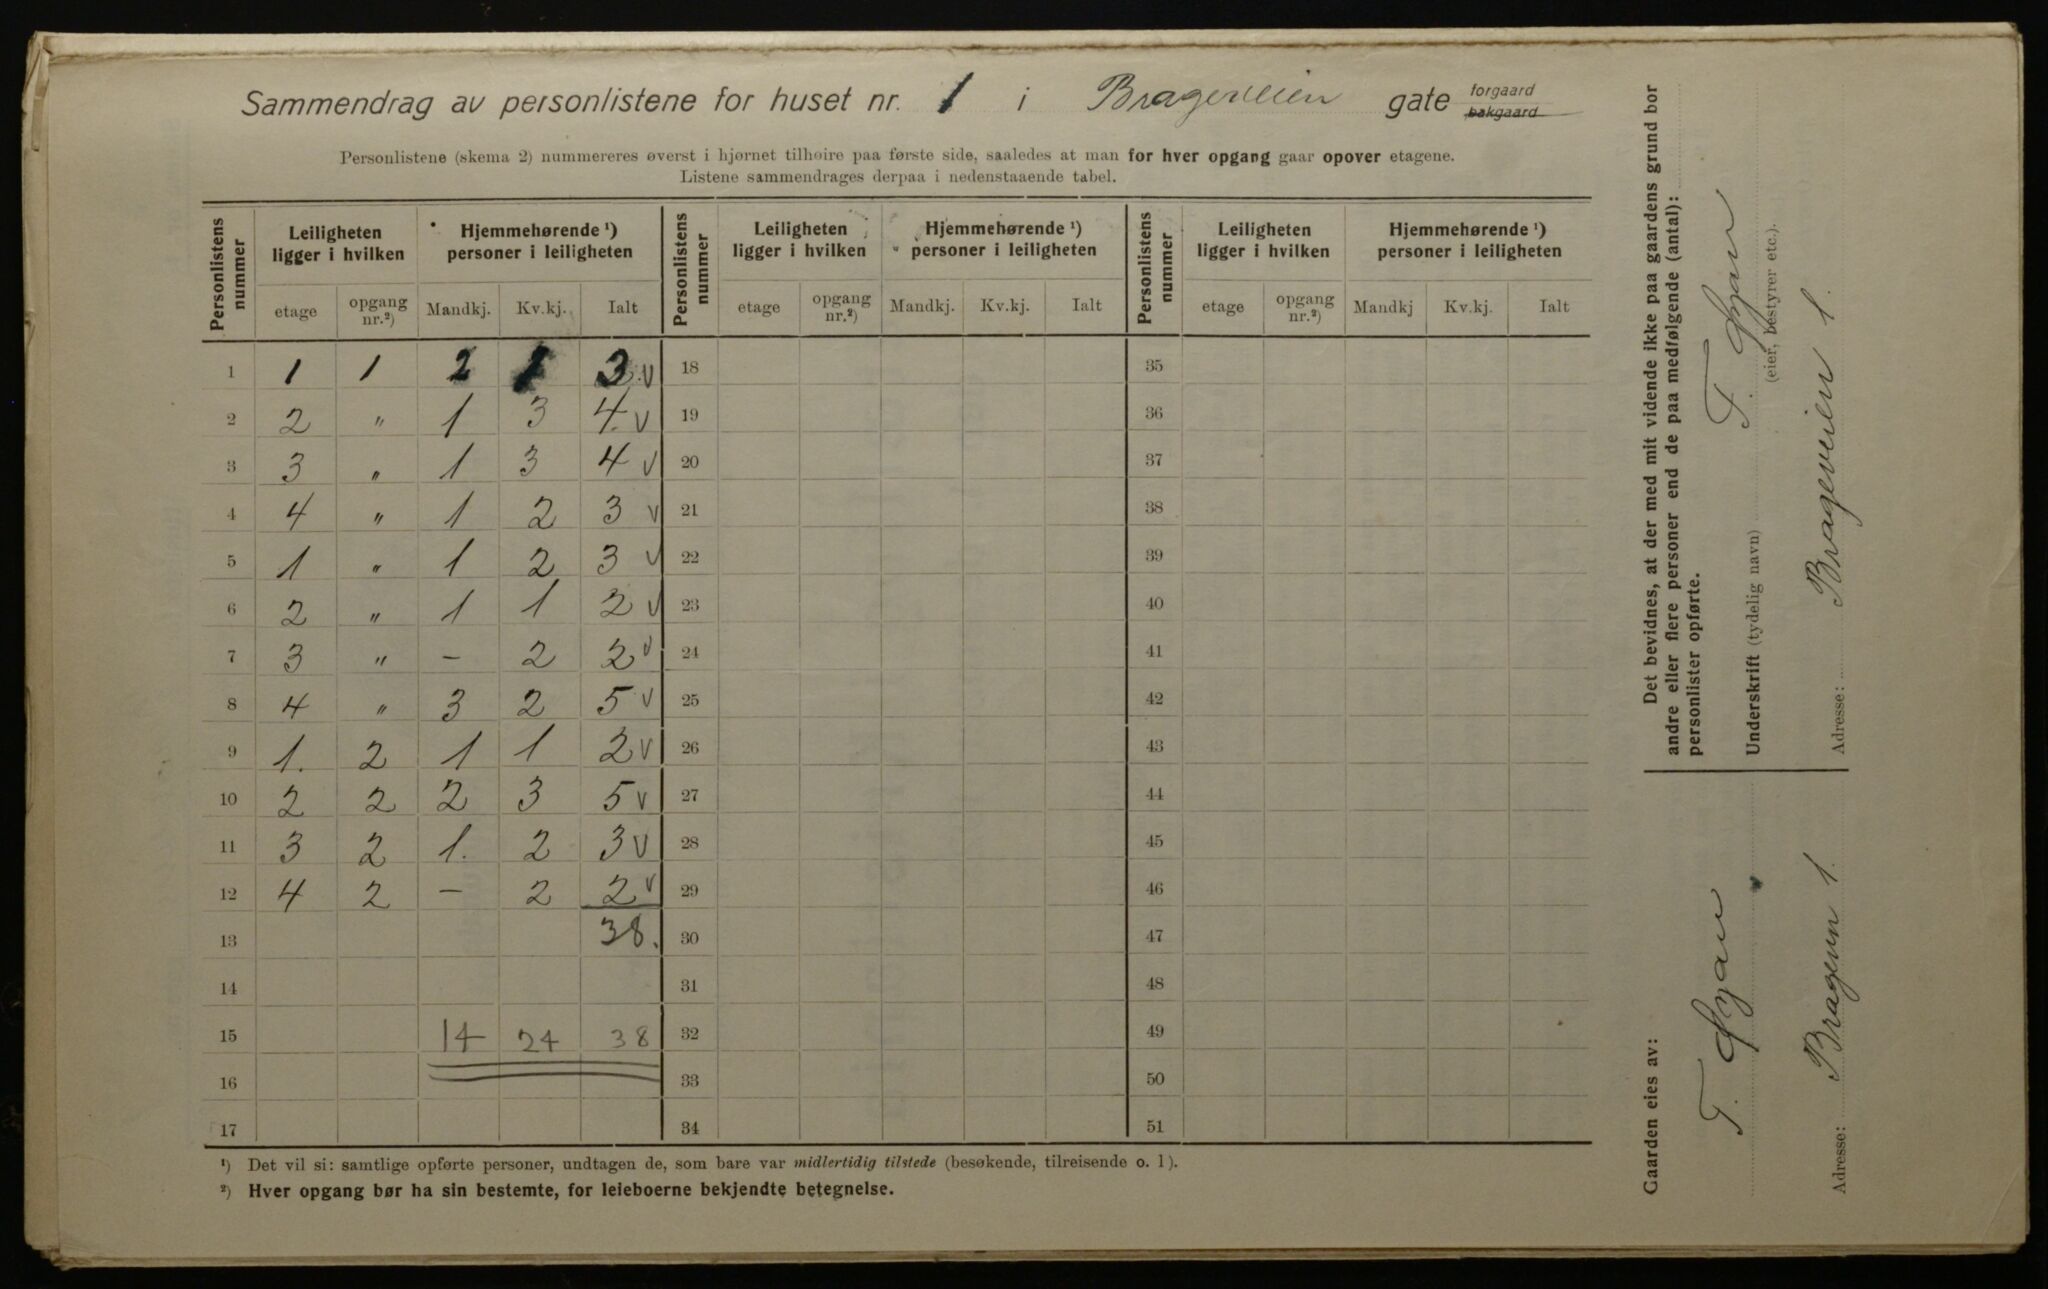 Sammendrag av personlistene for huset nr. 1 i Brageveien gate forgaard bakgaard
Personlistene (skema 2) nummereres øverst i hjørnet tilhøire paa første side, saaledes at man for hver opgang gaar opover etagene.
Listene sammendrages derpaa i nedenstaaende tabel.
Personlistens nummer | Leiligheten ligger i hvilken | Hjemmehørende ¹) personer i leiligheten | Personlistens nummer | Leiligheten ligger i hvilken | Hjemmehørende ¹) personer i leiligheten | Personlistens nummer | Leiligheten ligger i hvilken | Hjemmehørende ¹) personer i leiligheten
etage | opgang nr.²) | Mandkj. | Kv.kj. | Ialt | etage | opgang nr.²) | Mandkj. | Kv.kj. | Ialt | etage | opgang nr.²) | Mandkj | Kv.kj. | Ialt
1 | 1 | 1 | 2 | 1 | 3 v | 18 | 35
2 | 2 | " | 1 | 3 | 4. v | 19 | 36
3 | 3 | " | 1 | 3 | 4 v | 20 | 37
4 | 4 | " | 1 | 2 | 3 v | 21 | 38
5 | 1 | " | 1 | 2 | 3 v | 22 | 39
6 | 2 | " | 1 | 1 | 2 v | 23 | 40
7 | 3 | " | - | 2 | 2 v | 24 | 41
8 | 4 | " | 3 | 2 | 5 v | 25 | 42
9 | 1. | 2 | 1 | 1 | 2 v | 26 | 43
10 | 2 | 2 | 2 | 3 | 5 v | 27 | 44
11 | 3 | 2 | 1. | 2 | 3 v | 28 | 45
12 | 4 | 2 | - | 2 | 2 v | 29 | 46
13 | 38. | 30 | 47
14 | 31 | 48
15 | 14 | 24 | 38 | 32 | 49
16 | 33 | 50
17 | 34 | 51
¹) Det vil si: samtlige opførte personer, undtagen de, som bare var midlertidig tilstede (besøkende, tilreisende o. l).
²) Hver opgang bør ha sin bestemte, for leieboerne bekjendte betegnelse.
Det bevidnes, at der med mit vidende ikke paa gaardens grund bor
andre eller flere personer end de paa medfølgende (antal):
personlister opførte.
Underskrift (tydelig navn) T. Gjør
(eier, bestyrer etc.).
Adresse: Brageveien 1.
Gaarden eies av:
T. Gjør
Adresse: Bragevn 1.